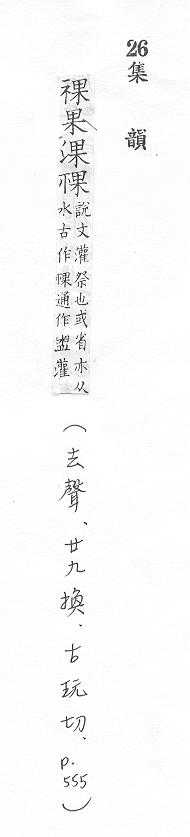 26集 韻
祼果淉䙛說文灌祭也或省亦从水古作䙛通作盥灌(去聲、廿九換、古玩切、p.555)